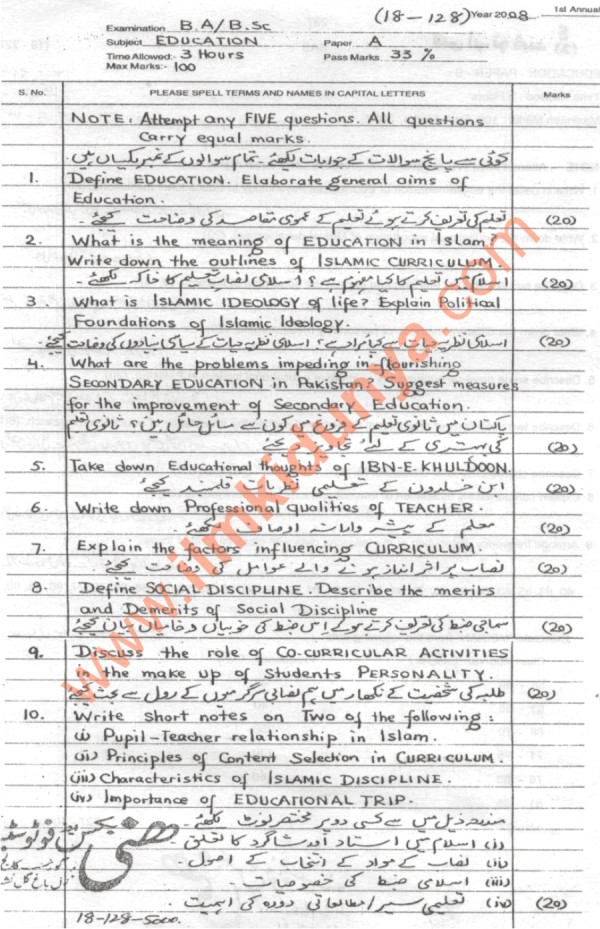 (18-128) Year 2008 1st Annual
Examination B.A/B.Sc
Subject EDUCATION Paper A
Time Allowed:- 3 Hours Pass Marks 33 %
Max Marks:- 100
S. No. PLEASE SPELL TERMS AND NAMES IN CAPITAL LETTERS Marks
NOTE: Attempt any FIVE questions. All questions
Carry equal marks.
کوئی سے پانچ سوالات کے جوابات لکھئے۔ تمام سوالوں کے نمبر یکساں ہیں۔
1. Define EDUCATION. Elaborate general aims of
Education.
تعلیم کی تعریف کرتے ہوئے تعلیم کے عمومی مقاصد کی وضاحت کیجئے۔ (20)
2. What is the meaning of EDUCATION in Islam?
Write down the outlines of ISLAMIC CURRICULUM.
اسلام میں تعلیم کا کیا مفہوم ہے؟ اسلامی نصاب تعلیم کا خاکہ لکھئے۔ (20)
3. What is ISLAMIC IDEOLOGY of life? Explain Political
Foundations of Islamic Ideology.
اسلامی نظریہ حیات سے کیا مراد ہے؟ اسلامی نظریہ حیات کے سیاسی بنیادوں کی وضاحت کیجئے (20)
4. What are the problems impeding in flourishing
SECONDARY EDUCATION in Pakistan? Suggest measures
for the improvement of Secondary Education.
پاکستان میں ثانوی تعلیم کے فروغ میں کون سے مسائل حائل ہیں؟ ثانوی تعلیم
کی بہتری کے لئے تجاویز دیجئے (20)
5. Take down Educational thoughts of IBN-E-KHULDOON.
ابن خلدون کے تعلیمی نظریات قلمبند کیجئے (20)
6. Write down Professional qualities of TEACHER.
معلم کے پیشہ ورانہ اوصاف لکھئے۔ (20)
7. Explain the factors influencing CURRICULUM.
نصاب پر اثر انداز ہونے والے عوامل کی وضاحت کیجئے (20)
8. Define SOCIAL DISCIPLINE. Describe the merits
and Demerits of Social Discipline
سماجی ضبط کی تعریف کرتے ہوئے اس ضبط کی خوبیاں و خامیاں بیان کیجئے (20)
9. Discuss the role of CO-CURRICULAR ACTIVITIES
in the make up of Students PERSONALITY.
طلبہ کی شخصیت کے نکھار میں ہم نصابی سرگرمیوں کے رول سے بحث کیجئے (20)
10. Write short notes on Two of the following:
(i) Pupil-Teacher relationship in Islam.
(ii) Principles of Content Selection in CURRICULUM.
(iii) Characteristics of ISLAMIC DISCIPLINE.
(iv) Importance of EDUCATIONAL TRIP.
مندرجہ ذیل میں سے کسی دو پر مختصر نوٹ لکھئے۔
(i) اسلام میں استاد اور شاگرد کا تعلق۔
(ii) نصاب کے مواد کے انتخاب کے اصول۔
(iii) اسلامی ضبط کی خصوصیات۔
(iv) تعلیمی سیر/مطالعاتی دورہ کی اہمیت۔ (20)
18-128-5000.
www.ilmkidunya.com